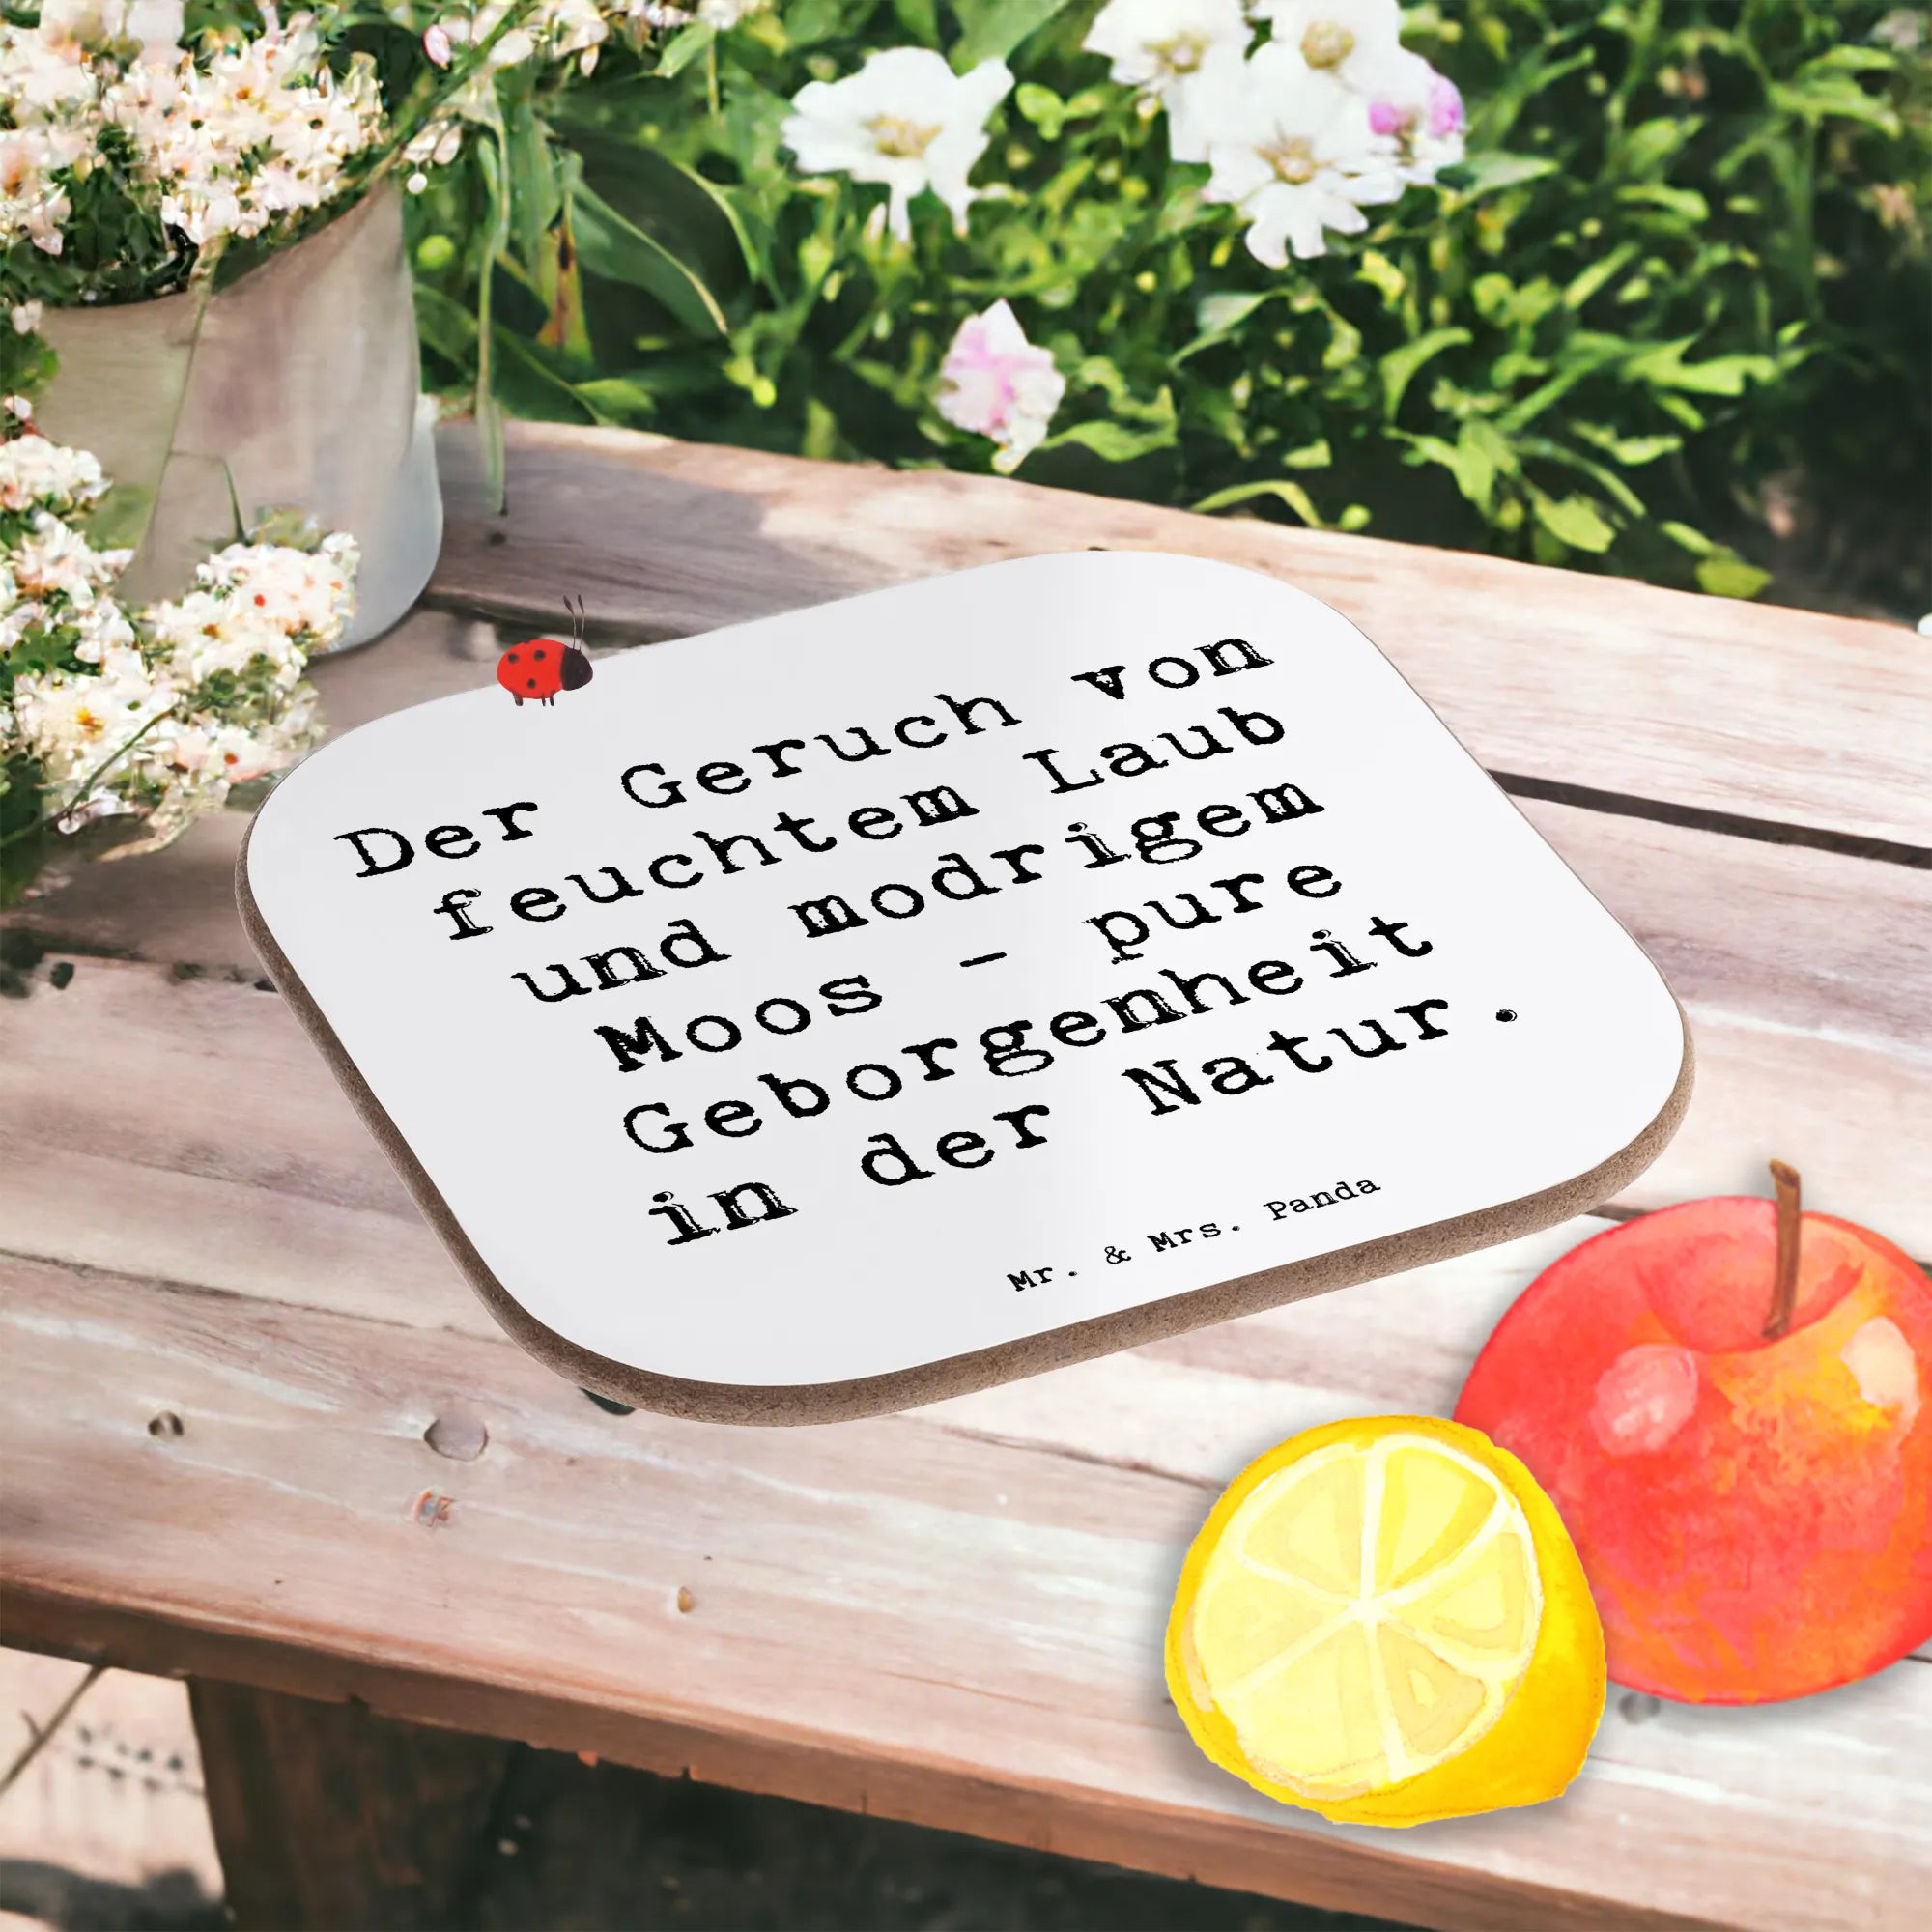 Der Geruch von
feuchtem Laub
und modrigem
Moos - pure
Geborgenheit
in der Natur.
Mr. & Mrs. Panda